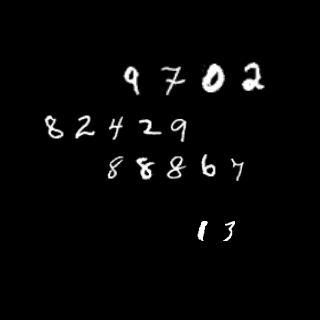 9702
82429
88867
13